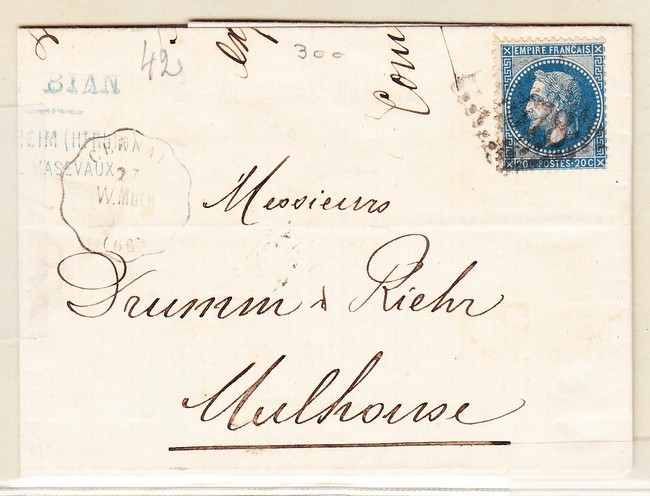 42
300
BIAN
EIM (HT RHIN)
MASEVAUX
CERNAY
27
W.MULH
(66)
EMPIRE FRANÇAIS
20C·POSTES·20C
Messieurs
Drumm & Riehr
Mulhouse